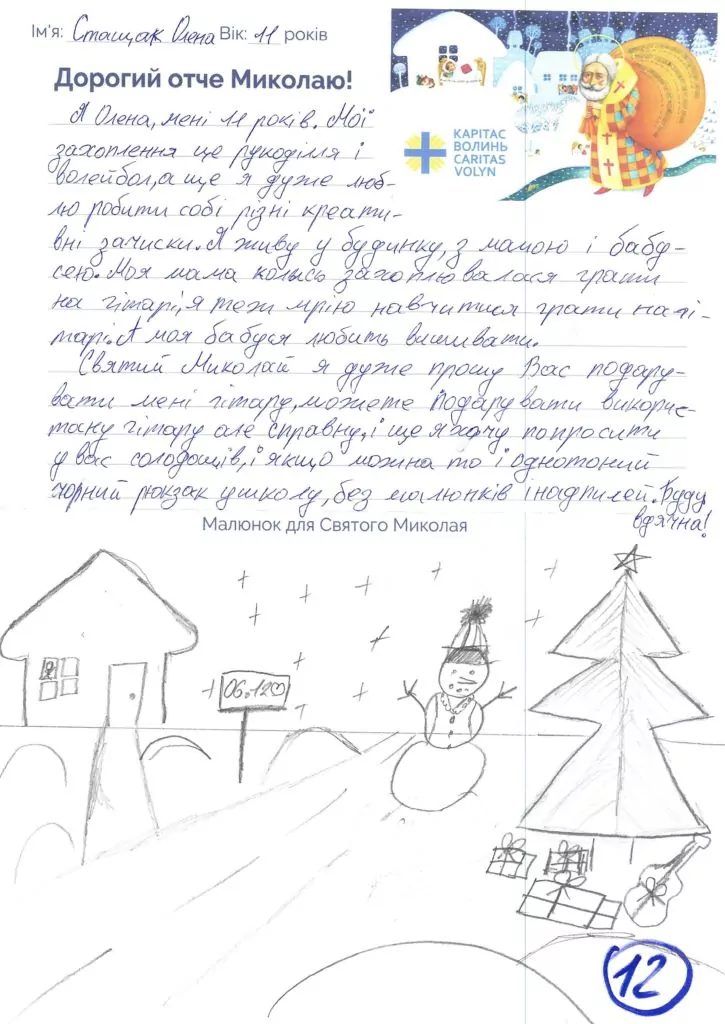 Ім'я: Стащак Олена Вік: 11 років
Дорогий отче Миколаю!
КАРІТАС
ВОЛИНЬ
CARITAS
VOLYN
Я Олена, мені 11 років. Мої
захоплення це рукоділля і
волейбол, а ще я дуже люб-
лю робити собі різні креати-
вні зачиски. Я живу у будинку, з мамою і бабу-
сею. Моя мама колись захоплювалася грати
на гітарі, я теж мрію навчитися грати на гі-
тарі. А моя бабуся любить вишивати.
Святий Миколай я дуже прошу Вас подару-
вати мені гітару, можете подарувати викорис-
тану гітару але справну, і ще я хочу попросити
у вас солодощів, і якщо можна то і однотоний
чорний рюкзак у школу, без малюнків і надписей. Буду
вдячна!
Малюнок для Святого Миколая
06.12
12